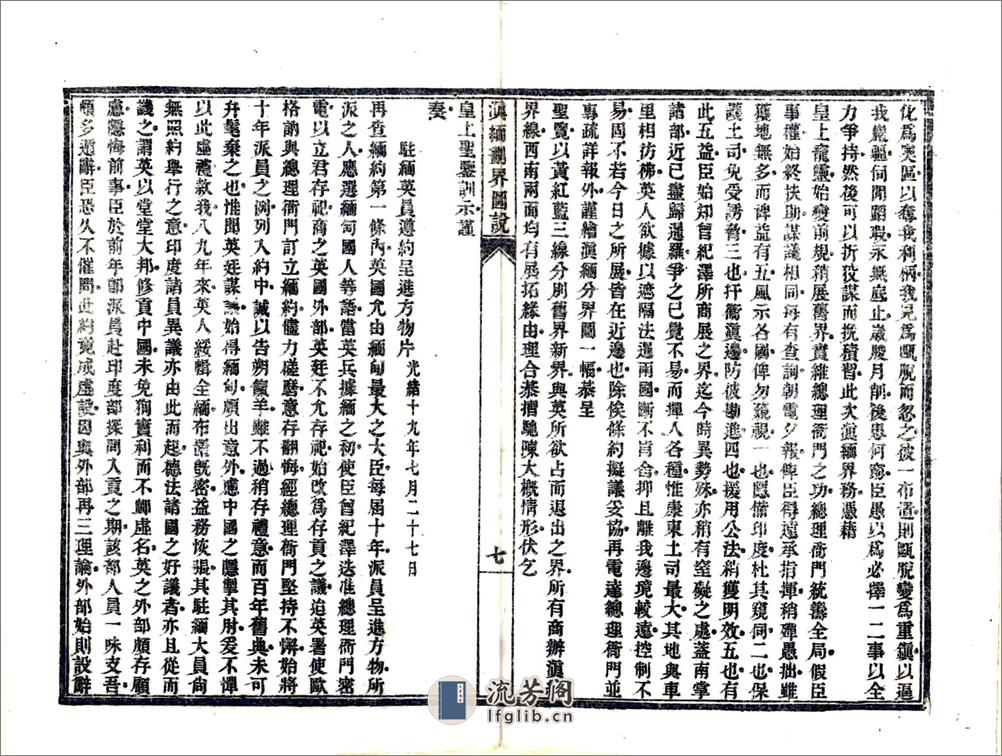 化爲奧區以奪我利柄我兄爲甌脫而忽之彼一布置則甌脫變爲重鎭以逼
我巖疆伺間蹈瑕永無底止歲朘月削後患何窮臣愚以爲必擇一二事以全
力爭持然後可以折狡謀而挽積習此次滇緬界務憑藉
皇上寵靈始變前規稍展舊界實維總理衙門之功總理衙門統籌全局假臣
事權始終扶助謀議相同每有查詢朝電夕報俾臣得遠承指揮稍殫愚拙雖
獲地無多而裨益有五風示各國俾勿藐視一也隱備印度杜其窺伺二也保
護土司免受誘脅三也扞衝滇邊防彼勘進四也援用公法稍獲明效五也有
此五益臣始知曾紀澤所商展之界迄今時異勢殊亦稍有窒礙之處蓋南掌
諸部近已盡歸暹羅爭之已覺不易而撣人各種惟康東土司最大其地與車
里相彷彿英人欲據以遮隔法暹兩國斷不肯舍抑且離我邊境較遠控制不
易周不若今日之所展皆在近邊也除俟條約擬議妥協再電達總理衙門並
專疏詳報外謹繪滇緬分界圖一幅恭呈
聖覽以黃紅藍三線分別舊界新界與英所欲占而退出之界所有商辦滇
界線西南兩面均有展拓緣由理合恭摺馳陳大概情形伏乞
滇緬劃界圖說
七
皇上聖鑒訓示謹
奏
駐緬英員遵約呈進方物片 光緒十九年七月二十七日
再查緬約第一條內英國允由緬甸最大之大臣每屆十年派員呈進方物所
派之人應選緬甸國人等語當英兵據緬之初使臣曾紀澤迭准總理衙門密
電以立君存祀商之英國外部英廷不允存祀始改爲存貢之議迨英署使歐
格訥與總理衙門訂立緬約儘力磋磨意存翻悔經總理衙門堅持不懈始將
十年派員之例列入約中誠以告朔餼羊雖不過稍存禮意而百年舊典未可
弁髦棄之也惟聞英廷謀議始得緬甸頗出意外慮中國之隱掣其肘爰不憚
以此虛禮款我八九年來英人綏輯全緬布置旣密益務恢張其駐緬大員尙
無照約舉行之意印度諸員異議亦由此而起德法諸國之好議者亦且從而
譏之謂英以堂堂大邦修貢中國未免狥實利而不顧虛名英之外部頗存顧
慮隱悔前事臣於前年卽派員赴印度部探問入貢之期該部人員一味支吾
頗多遁辭臣恐久不催問此約竟成虛設因與外部再三理論外部始則設辭
流芳阁
lfglib.cn